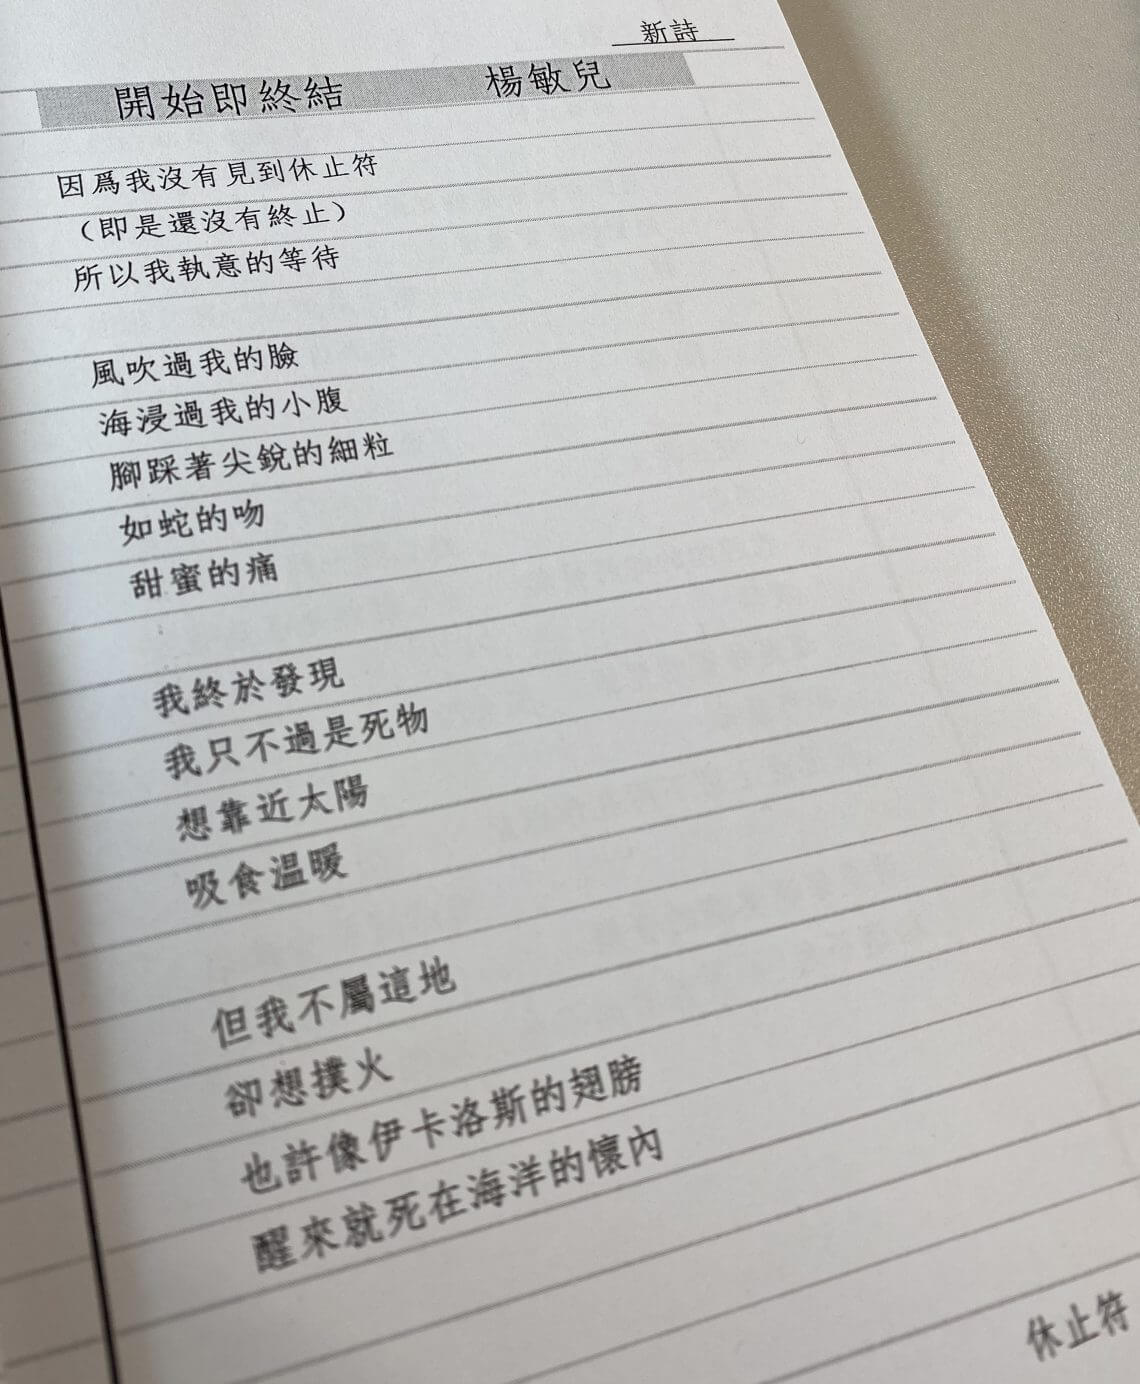 新詩
開始即終結 楊敏兒
因爲我沒有見到休止符
（即是還沒有終止）
所以我執意的等待
風吹過我的臉
海浸過我的小腹
腳踩著尖銳的細粒
如蛇的吻
甜蜜的痛
我終於發現
我只不過是死物
想靠近太陽
吸食温暖
但我不屬這地
卻想撲火
也許像伊卡洛斯的翅膀
醒來就死在海洋的懷內
休止符